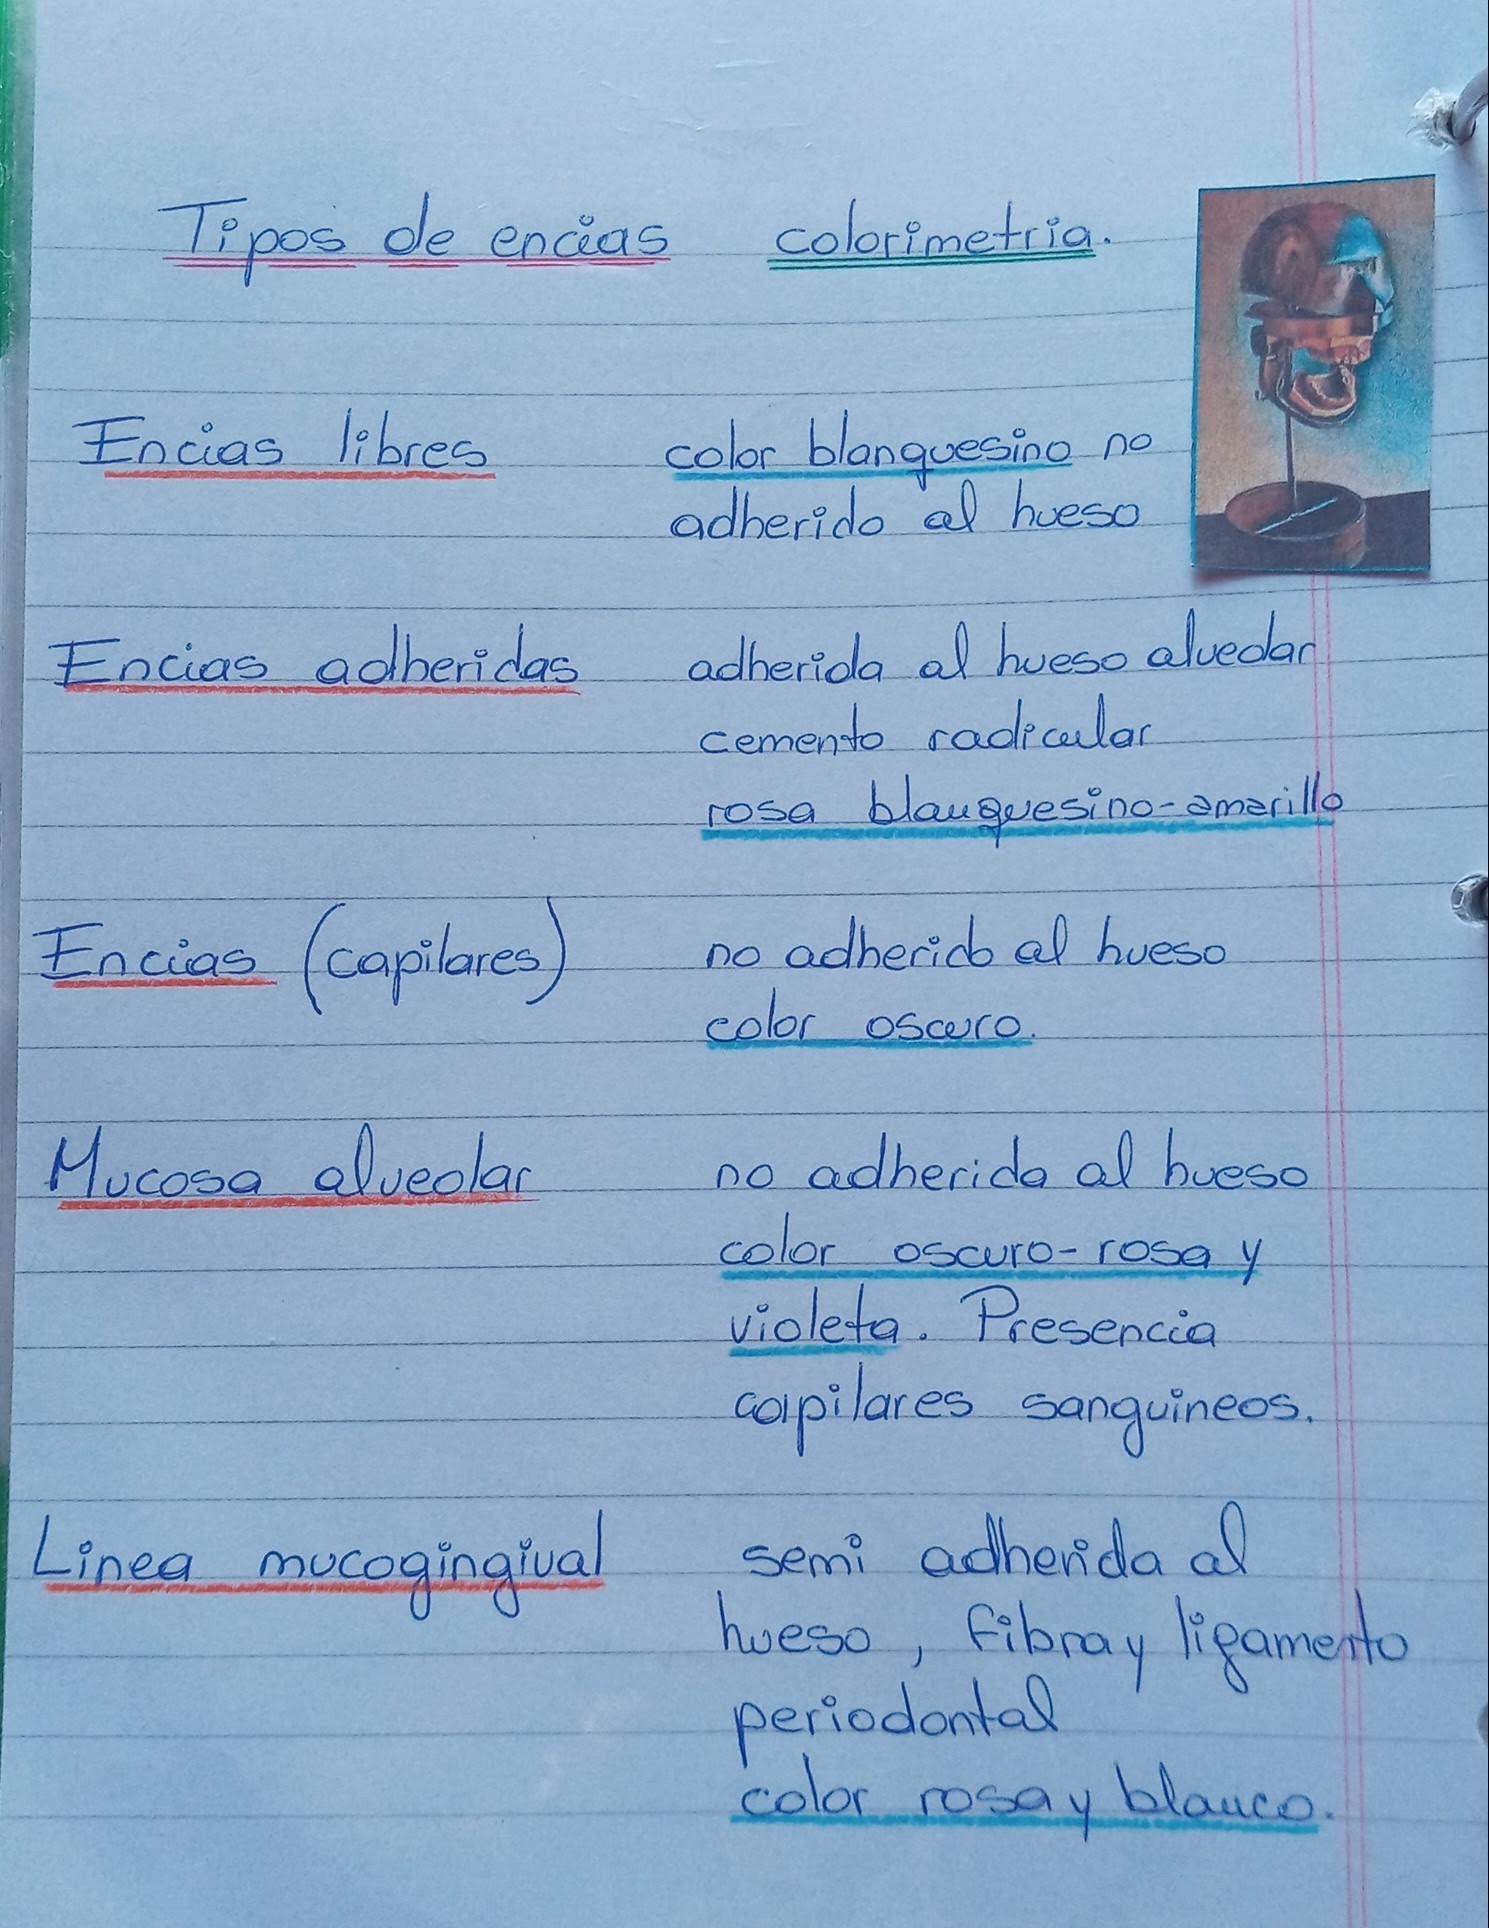 Tipos de encias colorimetria.
Encias libres color blanquesino no
adherido al hueso
Encias adheridas adherida al hueso alveolar
cemento radicular
rosa blanquesino-amarillo
Encias (capilares) no adherido al hueso
color oscuro.
Mucosa alveolar no adherida al hueso
color oscuro-rosa y
violeta. Presencia
capilares sanguineos.
Linea mucogingival semi adherida al
hueso, fibra y ligamento
periodontal
color rosa y blanco.